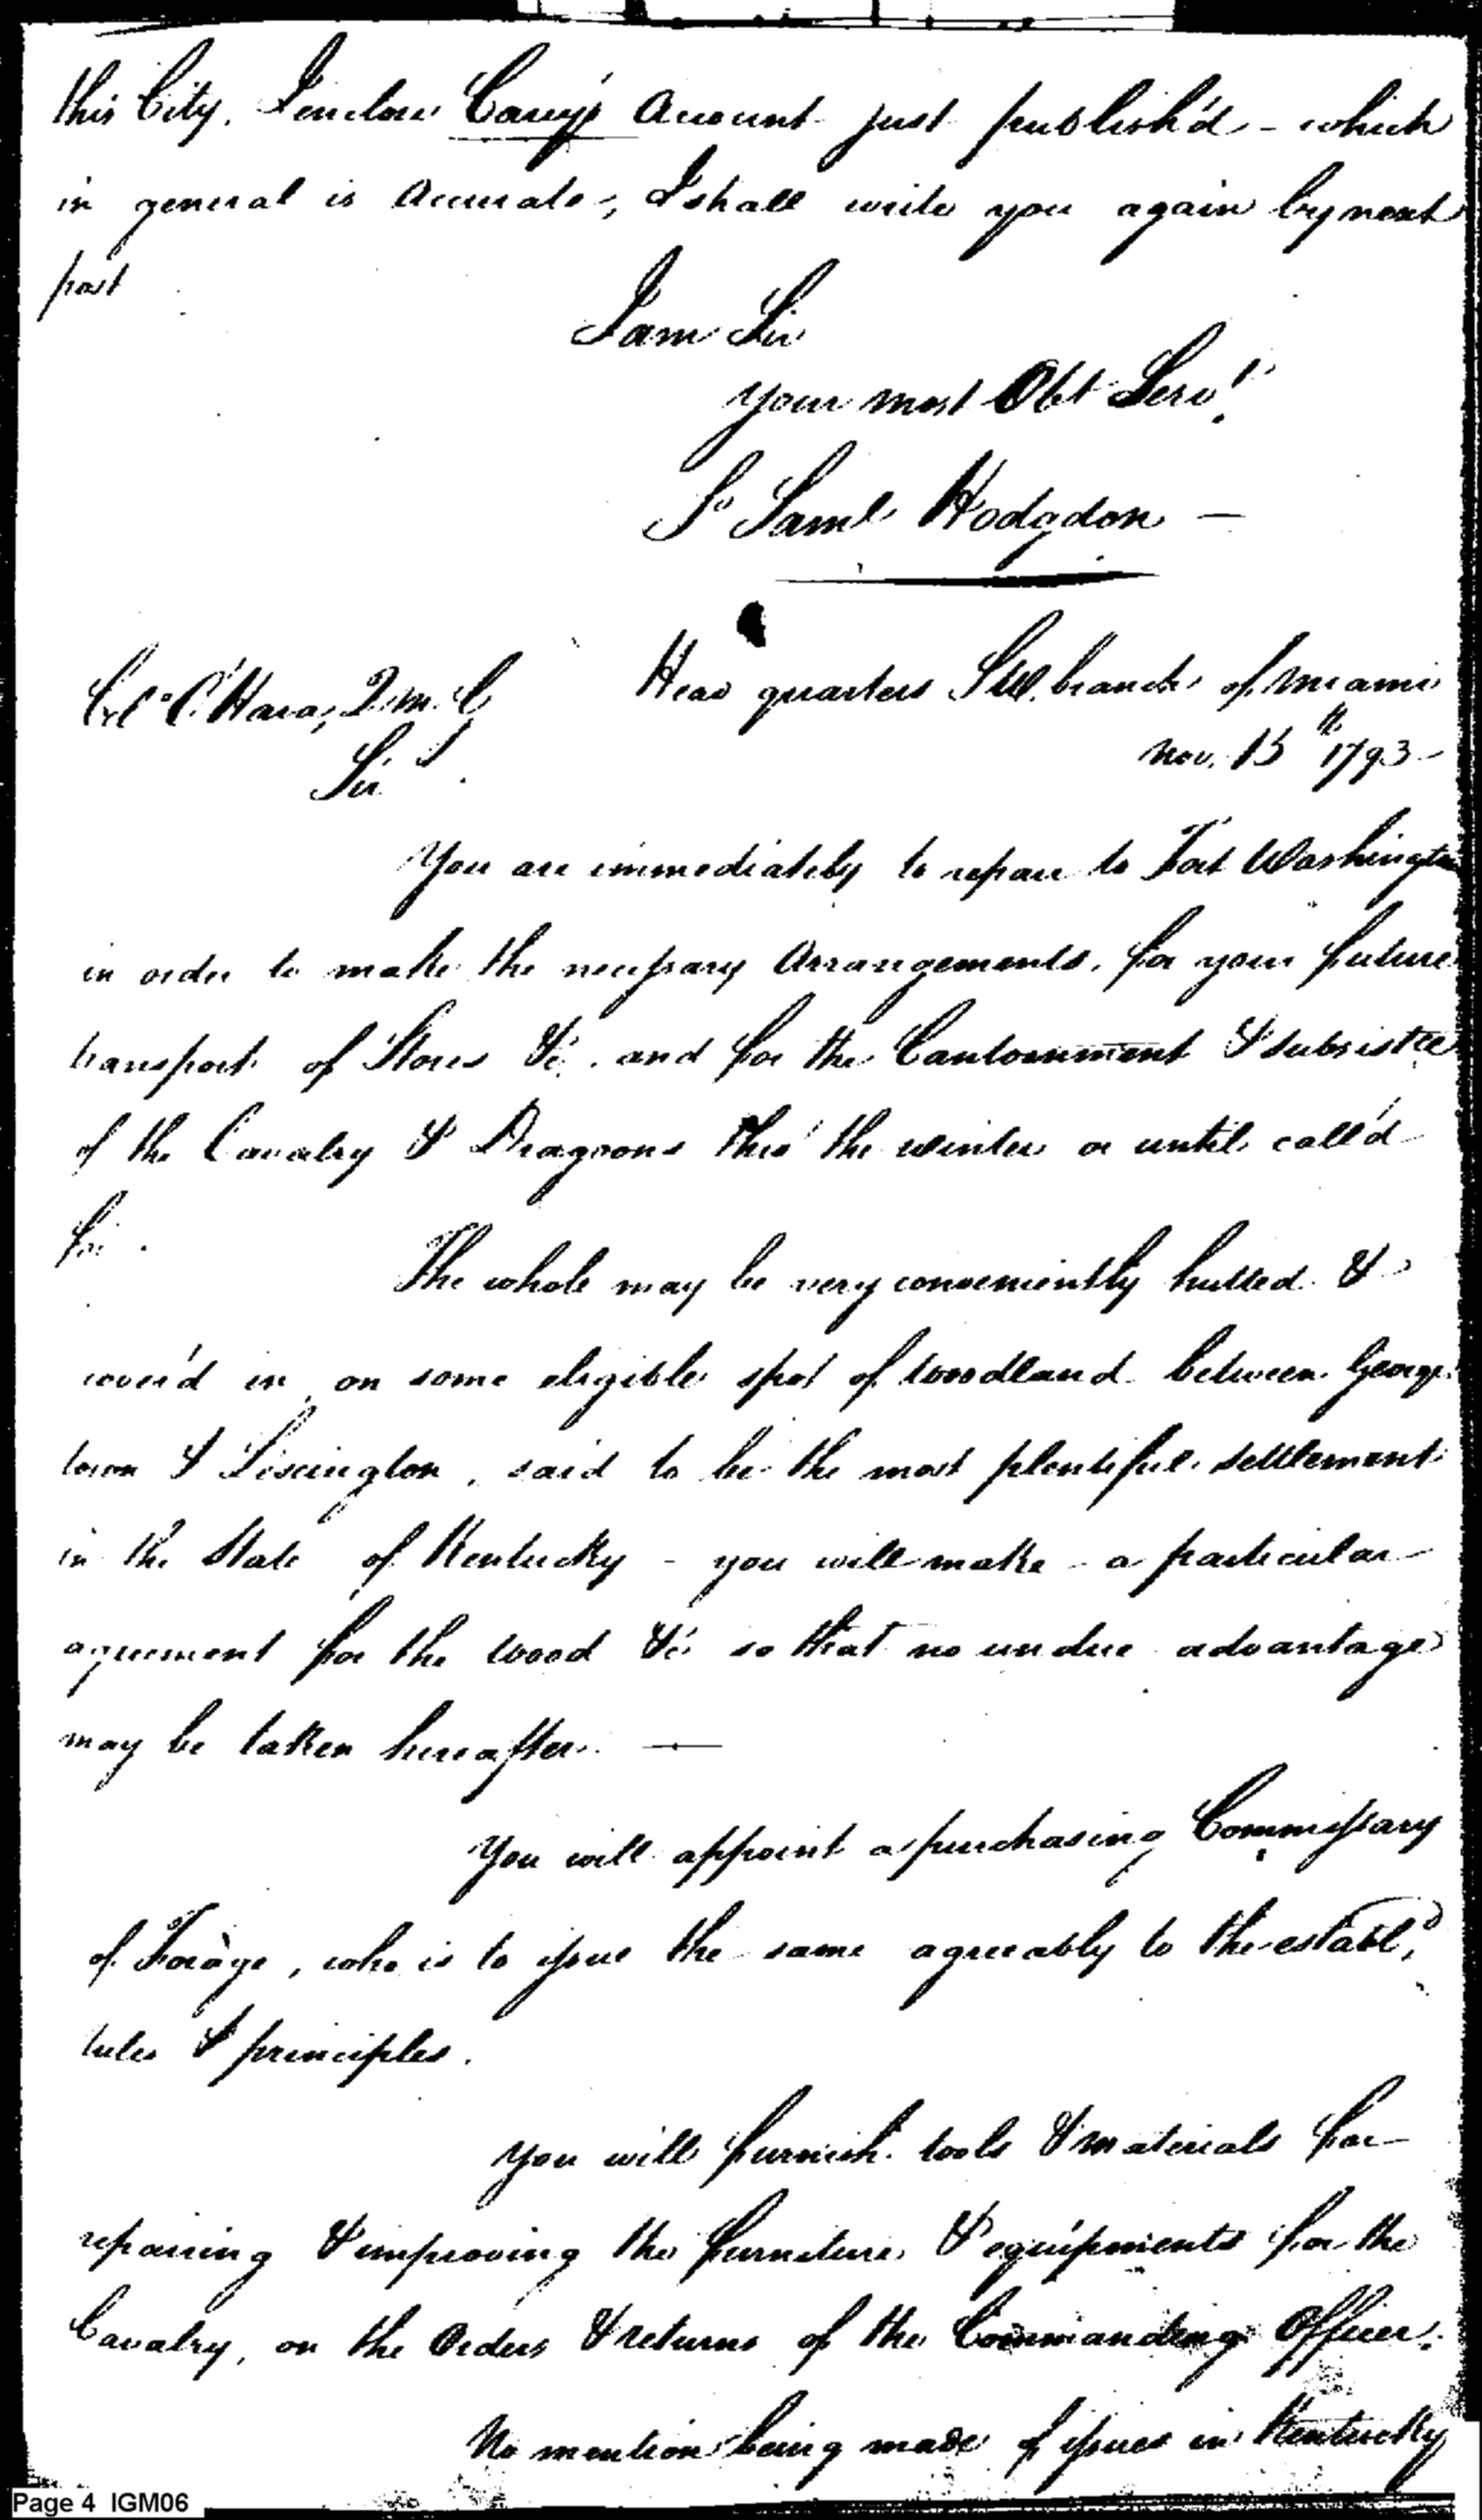 this City. I enclose Carey's Account just publish'd - which
in general is Accurate, I shall write you again by next
post
I am Sir
your most Obt Servt
Saml Hodgdon -
Col. O'Hara, Q.M.G
Head quarters S.W. branch of Miami
Sir
Nov. 15th 1793 -
You are immediately to repair to Fort Washington
in order to make the necessary Arrangements, for your future
transport of Stores &c. and for the Cantonment & subsistce
of the Cavalry & Dragoons thro' the winter or until call'd
for.
The whole may be very conveniently hutted &
cover'd in, on some eligible spot of woodland between George
town & Lixington, said to be the most plentiful settlement
in the State of Kentucky - you will make - a particular
agreement for the wood &c. so that no undue advantage
may be taken hereafter. -
You will appoint a purchasing Commissary
of Forage, who is to issue the same agreeably to the establd
rules & principles.
You will furnish tools & materials for
repairing & improving the furniture & equipments for the
Cavalry, on the Orders & returns of the Commanding Officer.
No mention being made of issues in Kentucky
Page 4 IGM06